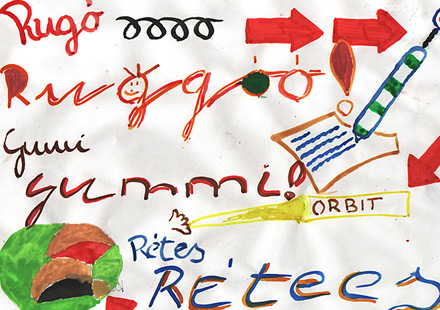 Rugó
Ruggóó!
Gumi
gummi!
ORBIT
Rétes
Rétees